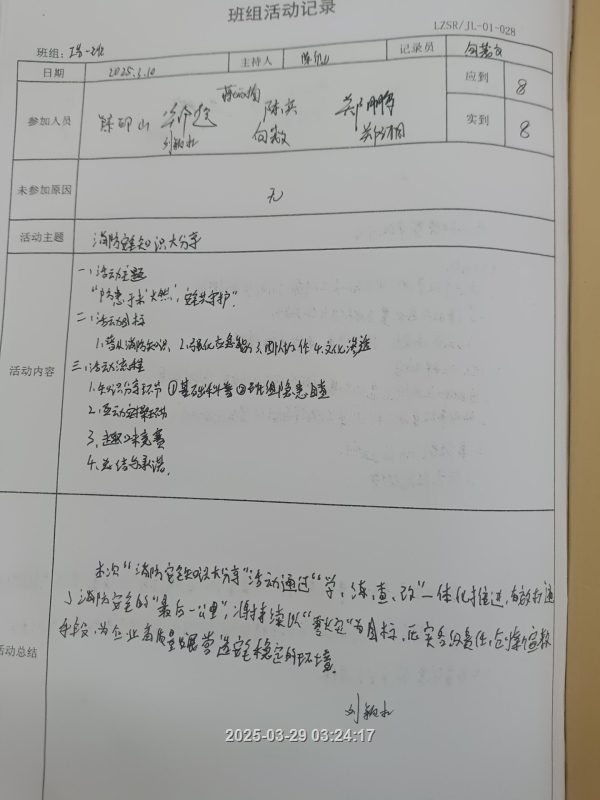 班组活动记录
LZSR/JL-01-028
班组:
日期 2025.3.10 主持人 记录员
参加人员 应到 8
陈印山
实到 8
未参加原因 无
活动主题 消防安全知识大分享
活动内容
一、活动主题
"防患于未'燃',安全共守护"
二、活动目标
1.普及消防知识、2.强化应急能力 3.团队协作 4.文化渗透
三、活动流程
1.知识分享环节 ①基础科普②班组隐患自查
2.互动演绎环节
3.趣味竞赛
4.总结与承诺.
本次"消防安全知识大分享"活动通过"学、练、查、改"一体化推进,有效打通
了消防安全的"最后一公里",将持续以"零火灾"为目标,压实各级责任,创新宣教
手段,为企业高质量发展营造安全稳定的环境.
活动总结
2025-03-29 03:24:17